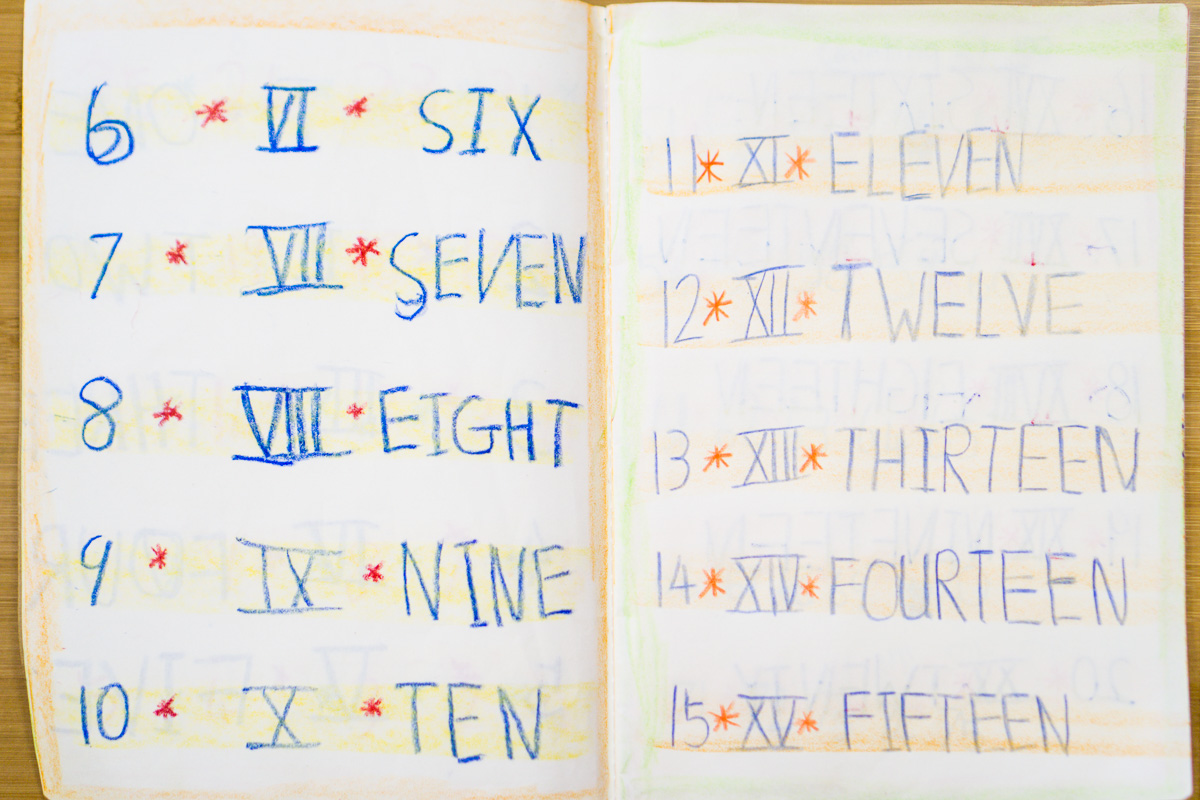 6 * VI * SIX
7 * VII * SEVEN
8 * VIII * EIGHT
9 * IX * NINE
10 * X * TEN
11 * XI * ELEVEN
12 * XII * TWELVE
13 * XIII * THIRTEEN
14 * XIV * FOURTEEN
15 * XV * FIFTEEN